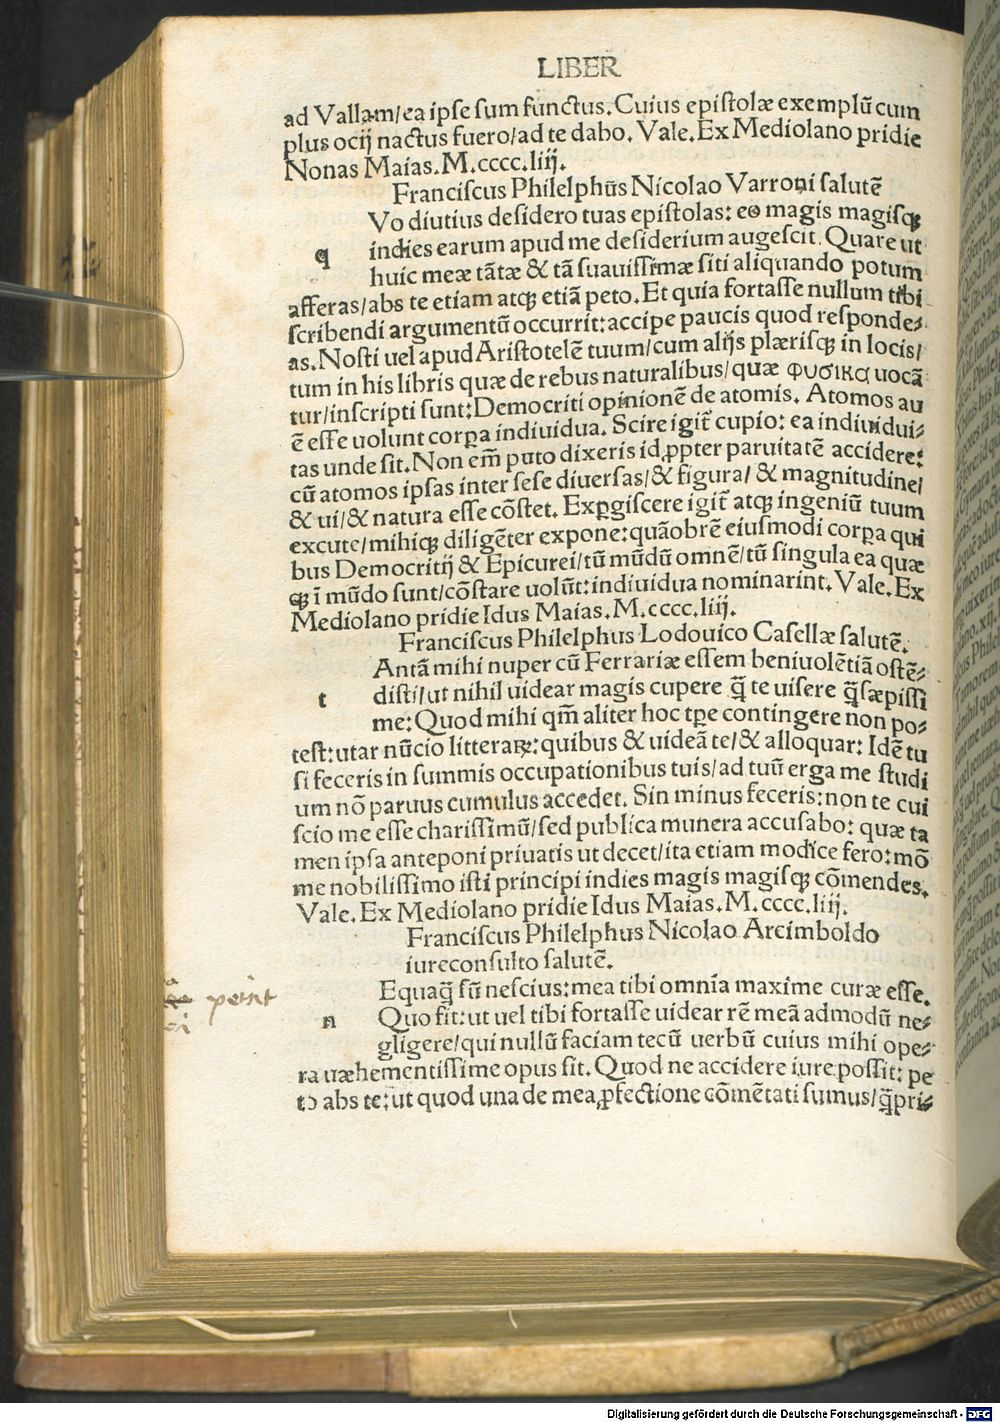 LIBER
ad Vallam/ea ipse sum functus. Cuius epistolæ exemplū cum
plus ocij nactus fuero/ad te dabo. Vale. Ex Mediolano pridie
Nonas Maias. M.cccc.liij.
Franciscus Philelphus Nicolao Varroni salutē
Vo diutius desidero tuas epistolas: eo magis magisqꝫ
q
indies earum apud me desiderium augescit. Quare ut
huic meæ tātæ & tā suauissimæ siti aliquando potum
afferas/abs te etiam atqꝫ etiā peto. Et quia fortasse nullum tibi
scribendi argumentū occurrit: accipe paucis quod responde⸗
as. Nosti uel apud Aristotelē tuum/cum alijs plærisqꝫ in locis/
tum in his libris quæ de rebus naturalibus/quæ φυσικα uocā
tur/inscripti sunt: Democriti opinionē de atomis. Atomos au
ē esse uolunt corꝑa indiuidua. Scire igit̄ cupio: ea indiuidui⸗
tas unde sit. Non em̄ puto dixeris id ꝓpter paruitatē accidere:
cū atomos ipsas inter sese diuersas/& figura/ & magnitudine/
& ui/& natura esse cōstet. Exꝑgiscere igit̄ atqꝫ ingeniū tuum
excute/mihiqꝫ diligēter expone: quāobrē eiusmodi corꝑa qui
bus Democritij & Epicurei/tū mūdū omnē/tū singula ea quæ
qꝫ ī mūdo sunt/cōstare uolūt: indiuidua nominarint. Vale. Ex
Mediolano pridie Idus Maias. M.cccc.liij.
Franciscus Philelphus Lodouico Casellæ salutē.
Antā mihi nuper cū Ferrariæ essem beniuolētiā ostē⸗
t
disti/ut nihil uidear magis cupere q̄ te uisere q̄ sæpissi
me: Quod mihi qm̄ aliter hoc tꝑe contingere non po⸗
test: utar nūcio litteraꝝ: quibus & uideā te/& alloquar: Idē tu
si feceris in summis occupationibus tuis/ad tuū erga me studi
um nō paruus cumulus accedet. Sin minus feceris: non te cui
scio me esse charissimū/sed publica munera accusabo: quæ ta
men ipsa anteponi priuatis ut decet/ita etiam modice fero: mō
me nobilissimo isti principi indies magis magisqꝫ cōmendes.
Vale. Ex Mediolano pridie Idus Maias. M.cccc.liij.
Franciscus Philelphus Nicolao Arcimboldo
iureconsulto salutē.
Equaq̄ sū nescius: mea tibi omnia maxime curæ esse.
n
Quo fit: ut uel tibi fortasse uidear rē meā admodū ne⸗
gligere/qui nullū faciam tecū uerbū cuius mihi ope⸗
ra uæhementissime opus sit. Quod ne accidere iure possit: pe
to abs te: ut quod una de mea ꝓfectione cōmētati sumus/q̄ pri⸗
Digitalisierung gefördert durch die Deutsche Forschungsgemeinschaft - DFG